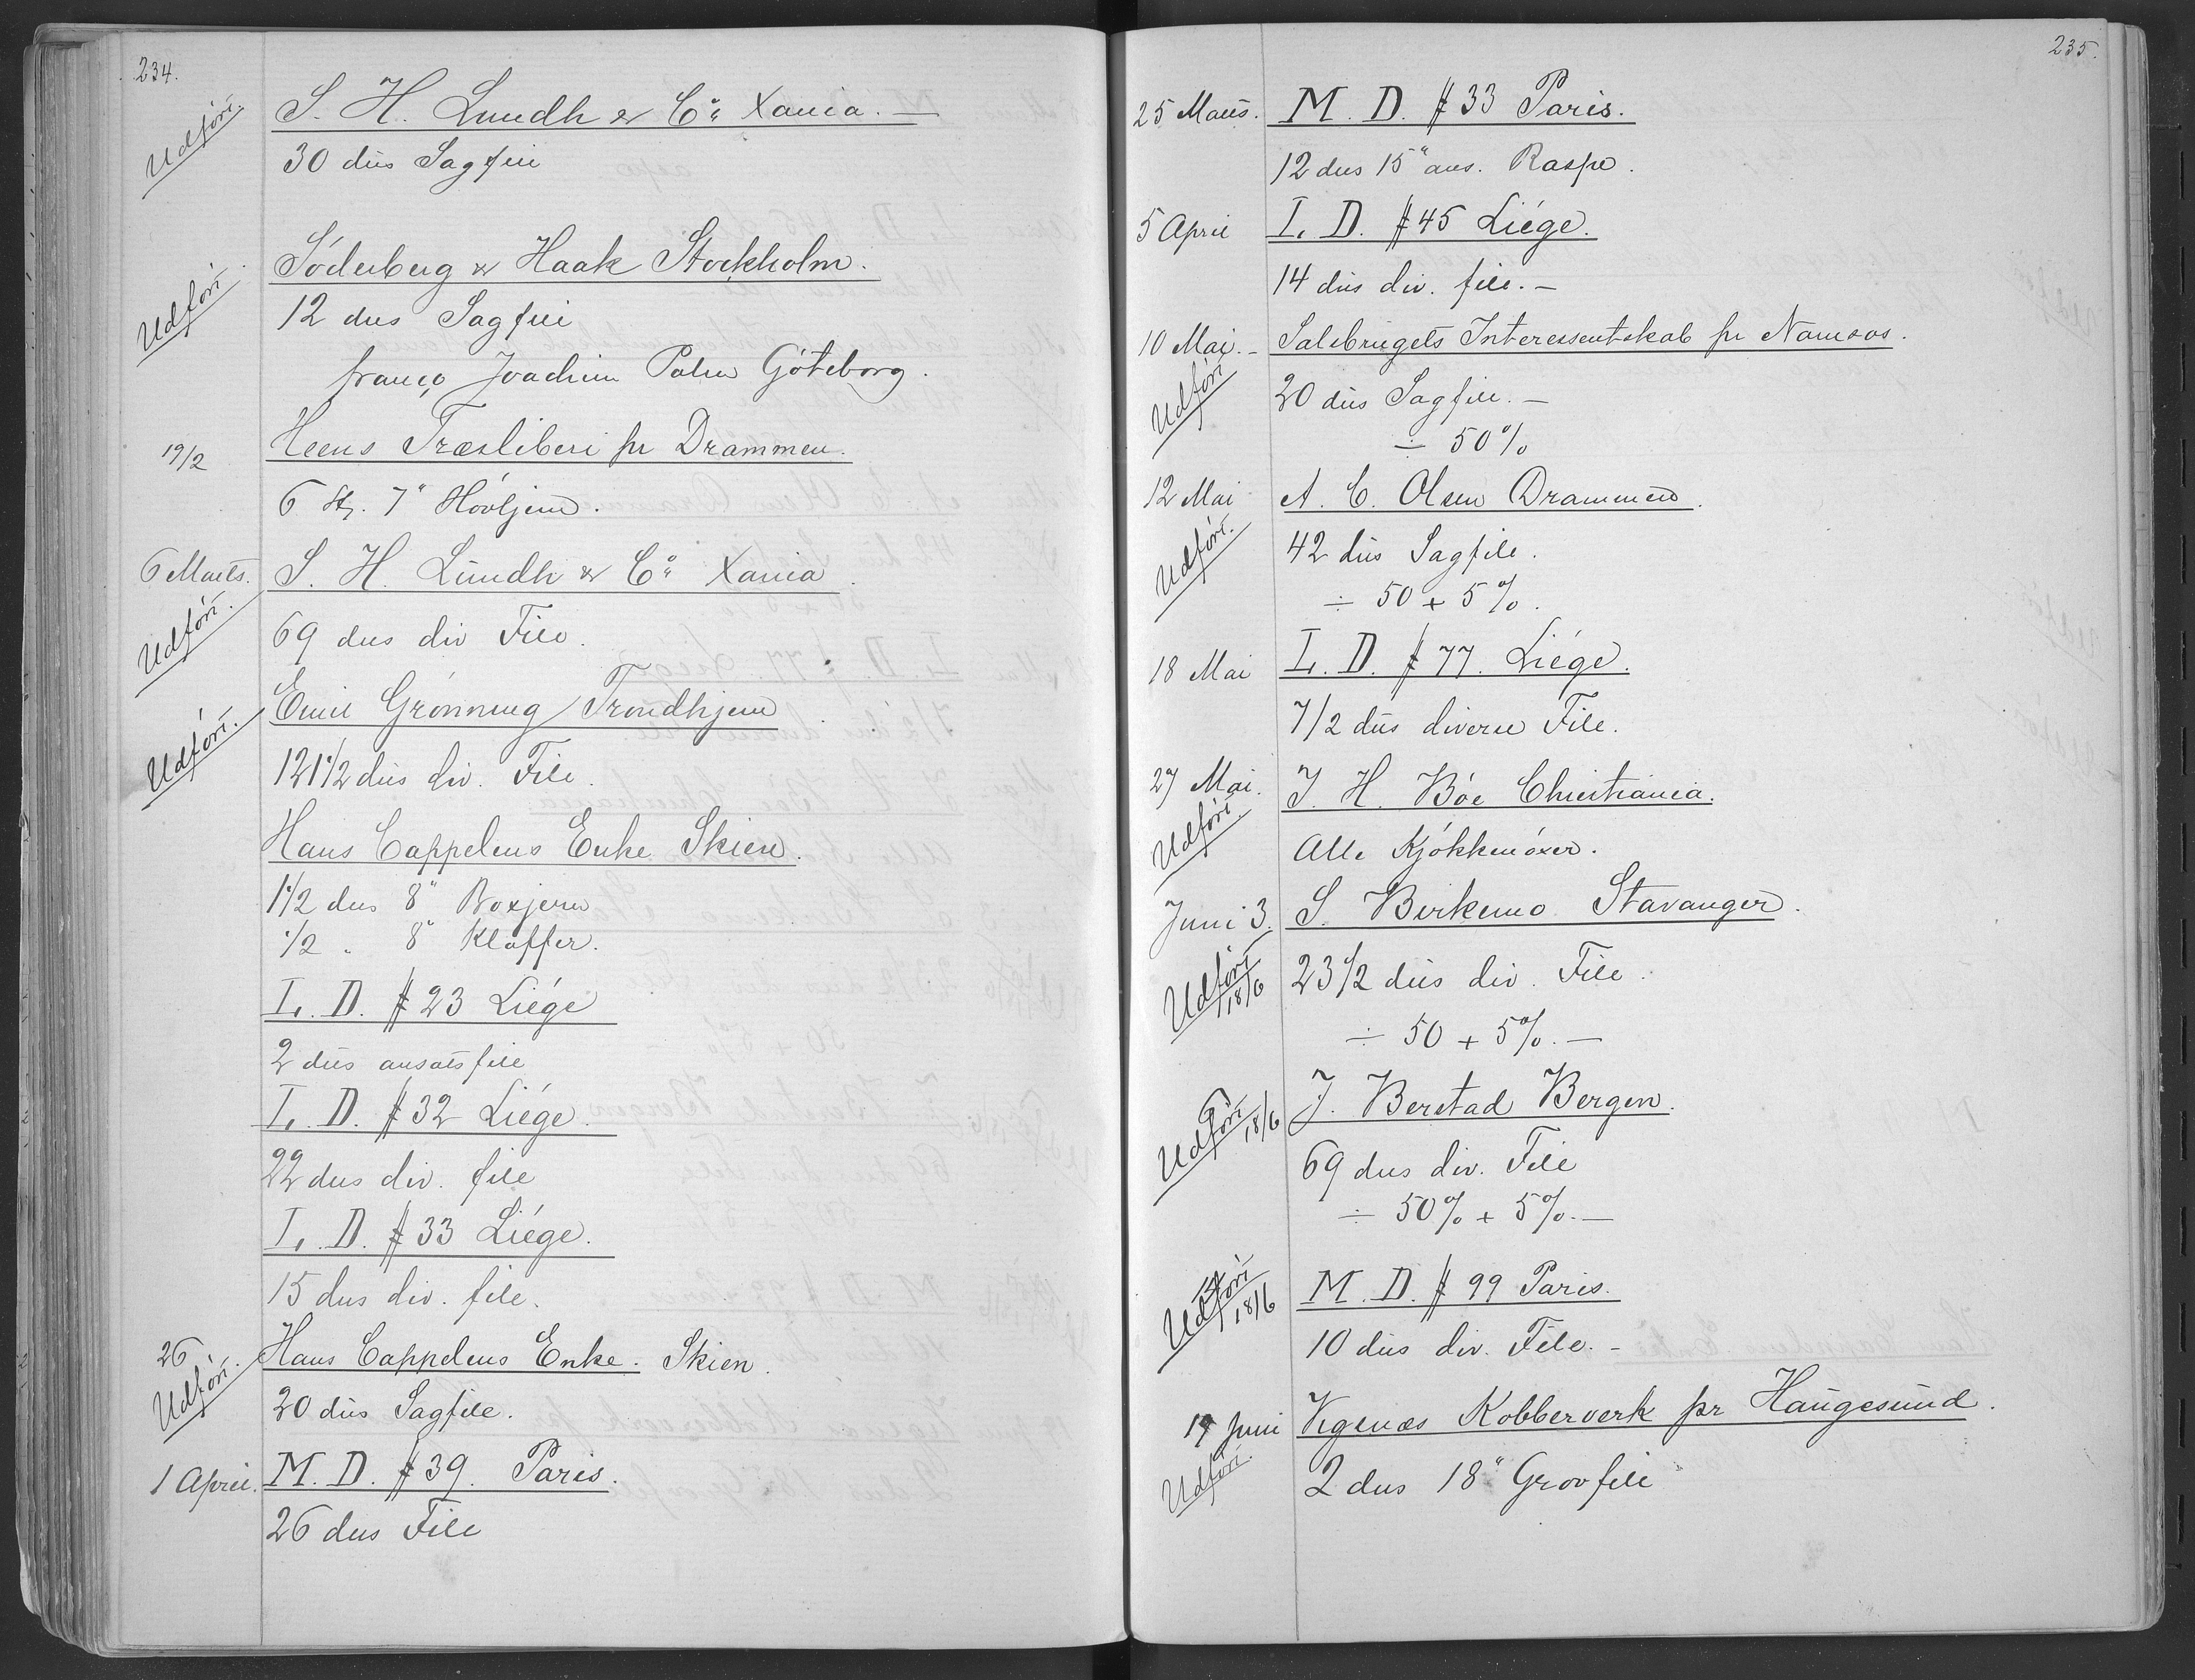 234.
Udført. S. H. Lundh & Co. Xania. —
30 dus Sagfile
Udført. Söderberg & Haak Stockholm.
12 dus Sagfile
franco Joachim Palm Göteborg.
19/2 Heens Træsliberi pr Drammen.
6 St. 7" Høvljern.
6 Marts. S. H. Lundh & Co. Xania.
Udført. 69 dus div File.
Udført. Emil Grønning Trondhjem
121 1/2 dus div. File.
Hans Cappelens Enke Skien.
1 1/2 dus 8" Boxjern
1/2 " 8" Klaffer.
L. D. # 23 Liége
2 dus ansatsfile
L. D. # 32 Liége.
22 dus div. file
L. D. # 33 Liége.
15 dus div. file.
26 Hans Cappelens Enke. Skien.
Udført. 20 dus Sagfile.
1 April. M. D. # 39. Paris.
26 dus File
235.
25 Marts. M. D. # 33 Paris.
12 dus 15" ans. Raspe.
5 April L. D. # 45 Liége.
14 dus div. file. —
10 Mai. - Salsbrugets Interessentskab pr Namsos.
Udført 20 dus Sagfile. —
÷ 50 %
12 Mai A. C. Olsen Drammen.
Udført. 42 dus Sagfile.
÷ 50 + 5 %.
18 Mai L. D. # 77. Liége.
7/2 dus diverse File.
27 Mai. J. H. Bøe Christiania.
Udført. Alle Kjøkkenøxer.
Juni 3. S. Birkemo Stavanger.
Udført 18/6 23 1/2 dus div. File.
÷ 50 + 5 %. —
Udført 18/6 J. Berstad Bergen.
69 dus div. File
÷ 50 % + 5 %. —
Udført 18/6 M. D. # 99 Paris.
10 dus div. File. -
19 Juni Vigsnæs Kobberverk pr Haugesund.
Udført. 2 dus 18" Grovfile